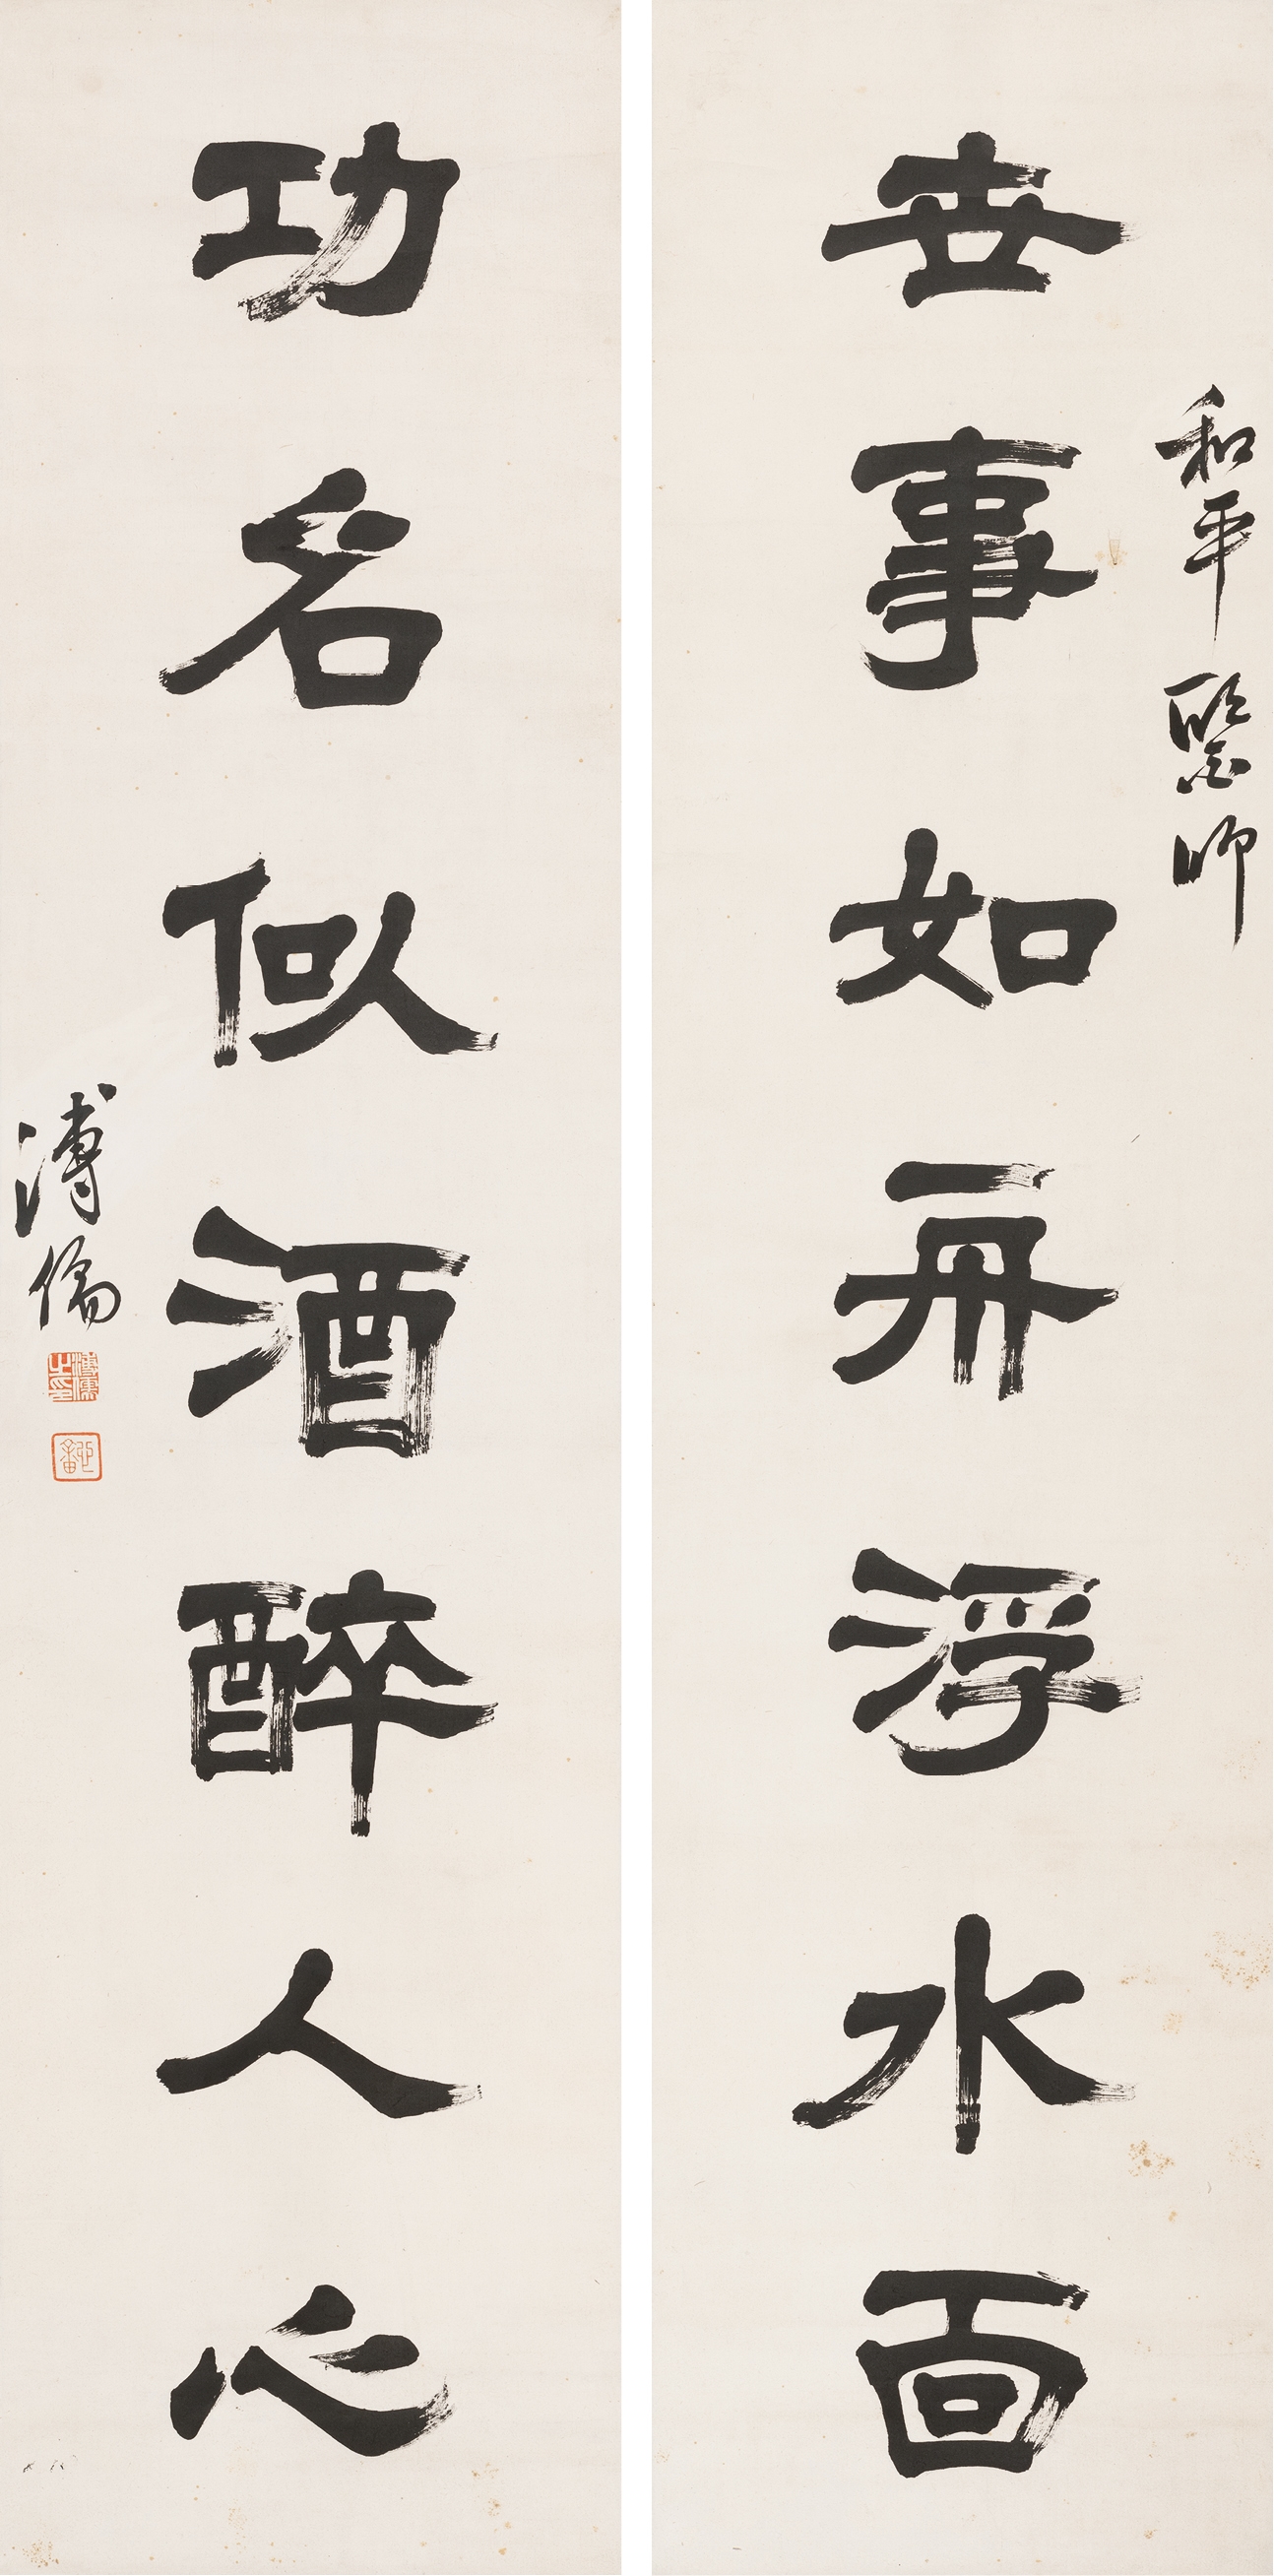 和平醫師
世事如舟浮水面
功名似酒醉人心
溥儒
溥儒之印
心畬